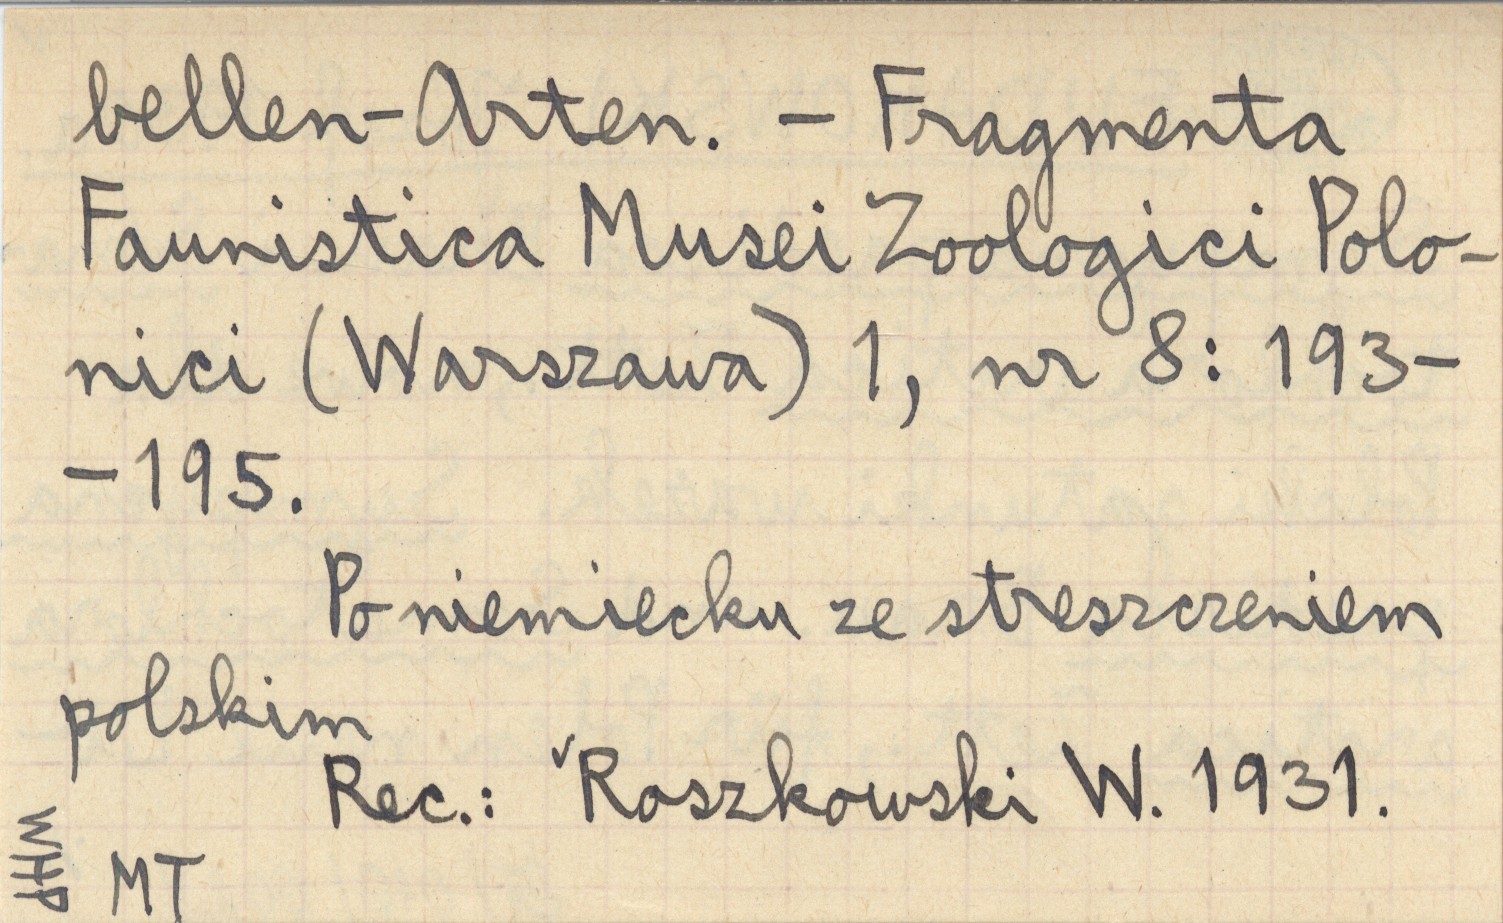 bellen-Arten. – Fragmenta
Faunistica Musei Zoologici Polo-
nici (Warszawa) 1, nr 8: 193-
-195.
Po niemiecku ze streszczeniem
polskim
Rec.: ˅Roszkowski W. 1931.
WHP
MT